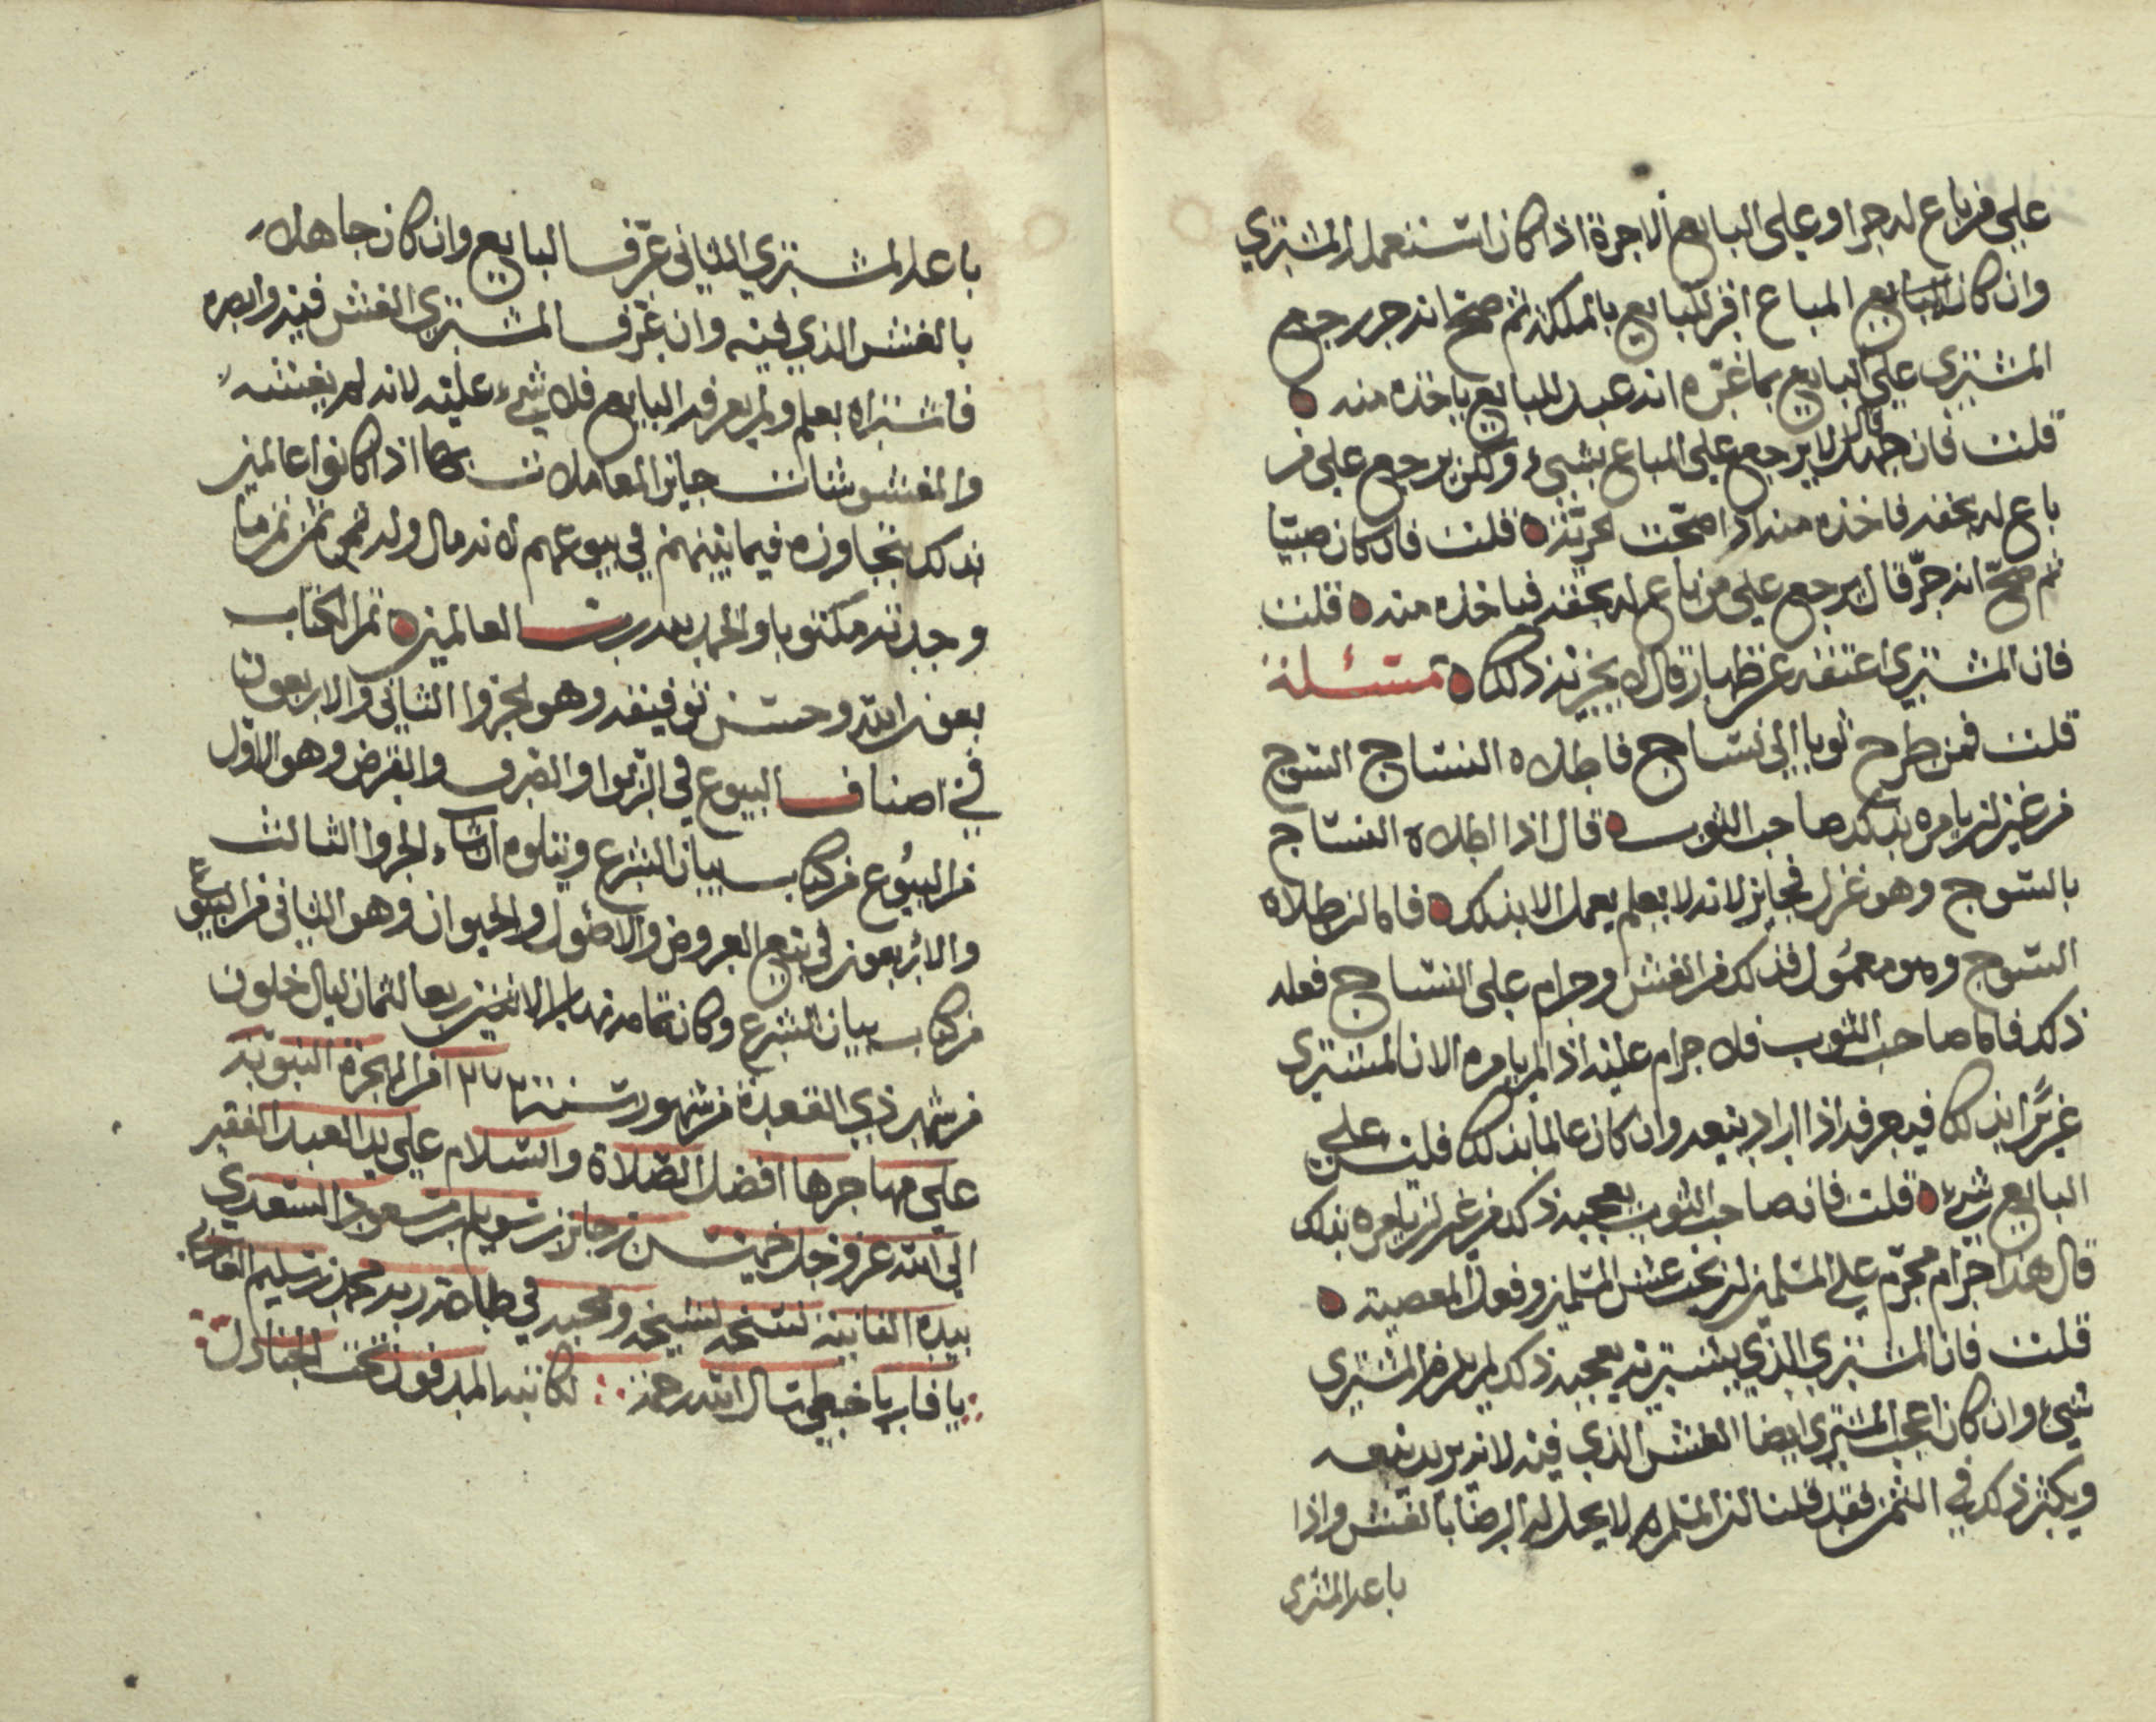 على من باع له حرا وعلى البايع الاجرة اذا كان استعمله المشتري
وان كان البايع المباع اقر للبايع بالملكة ثم صح انه حر رجع
المشتري على البايع بما غره انه عبد للبايع ياخذه منه
قلت فان جهل قال لا يرجع على المباع بشيء ولكن يرجع على من
باع له بحقه فاخذه منه اذا صحت حريته قلت فان كان صبيا
ثم صح انه حر قال يرجع على من باع له بحقه فياخذه منه قلت
فان المشتري اعتقه عن ظهار قال لا يجزيه ذلك مسئلة
قلت فمن طرح ثوبا الى نساج فاطلاه النساج الشوج
من غير ان يامره بذلك صاحب الثوب قال اذا اطلاه النساج
بالشوج وهو غزل فجايز لانه لا يعلم يعمل الا بذلك فاما ان طلاه
الشوج وهو معمول فذلك من الغش وحرام على النساج فعله
ذلك فاما صاحب الثوب فلا حرام عليه اذا لم يامره الا ان المشتري
غر بذلك فيعرفه اذا اراد بيعه وان كان عالما بذلك فليس على
البايع شيء قلت فان صاحب الثوب يعجبه ذلك من غير ان يامره بذلك
قال هذا حرام محرم على المسلمين ان يحب غش المسلمين وفعل المعصية
قلت فان المشتري الذي يشتريه يعجبه ذلك لم يلزم المشتري
شيء وان كان اعجب المشتري ايضا الغش الذي فيه لانه يريد بيعه
ويكثر ذلك في الثمن فقد قلنا ان المسلم لا يحل له الرضا بالغش واذا
باعه المشتري
باعه المشتري الثاني عرف البايع وان كان جاهلا
بالغش الذي فيه وان عرف المشتري الغش فيه وابصره
فاشتراه بعلم ولم يعرفه البايع فلا شيء عليه لانه لم يغشه
والمغشوشات جايز المعاملات بها اذا كانوا عالمين
بذلك يتجاوزه فيما بينهم في بيوعهم لانه مال وله ثمن تم ما
وجدته مكتوبا والحمد لله رب العالمين تم الكتاب
بعون الله وحسن توفيقه وهو الجزوا الثاني والاربعون
في اصناف البيوع في الربوا والصرف والقرض وهو الاول
من البيوع من كتاب بيان الشرع ويتلوه ان شاء الجزوا الثالث
والاربعون في بيع العروض والاصول والحيوان وهو الثاني من البيوع
من كتاب بيان الشرع وكان تمامه نهار الاثنين لثمان ليال خلون
من شهر ذي القعدة من شهور سنة من الهجرة النبوية
على مهاجرها افضل الصلاة والسلام على يد العبد الفقير
الى الله عز وجل خميس بن جابر بن سويلم بن مسعود السعدي
بيده الفانية نسخه لشيخه ومحبه في طاعة ربه محمد بن سليم
يا قاريا خطي سال الله رحمة لكاتبه المدفون تحت الجنادل